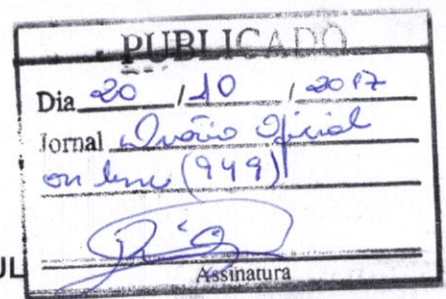 PUBLICADO
Dia 20 / 10 / 2017
Jornal Diário Oficial
on line (949)
UL
Assinatura